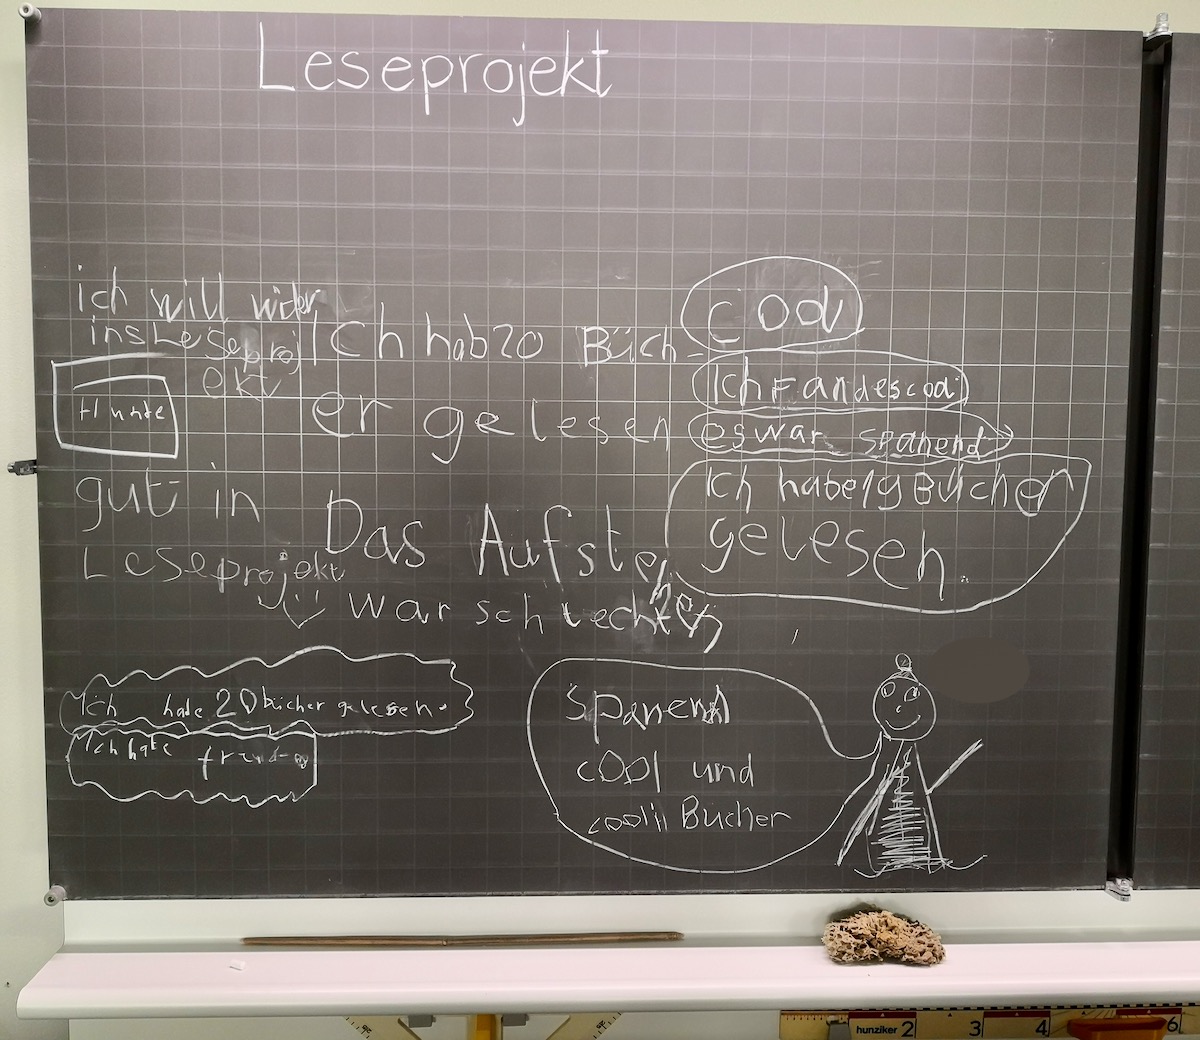 Leseprojekt
ich will wider
ins Leseproj
ekt
Ich hab 20 Büch-
er gelesen
cool
Ich fand es cool
es war spanend
Ich habe 19 Bücher
gelesen.
Hunde
gut in
Leseprojekt
Das Aufste
war schlecht
Ich habe 20 bücher gelesen.
Ich habe
Spanend
cool und
cooli Bücher
hunziker 2 3 4 6